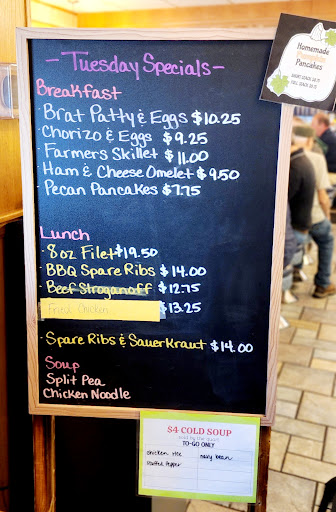 - Tuesday Specials -
Breakfast
· Brat Patty & Eggs $10.25
· Chorizo & Eggs $9.25
· Farmers Skillet $11.00
· Ham & Cheese Omelet $9.50
· Pecan Pancakes $7.75
Lunch
· 8oz Filet $19.50
· BBQ Spare Ribs $14.00
· Beef Stroganoff $12.75
Fried Chicken $13.25
· Spare Ribs & SauerKraut $14.00
Soup
Split Pea
Chicken Noodle
Homemade
Pancakes
$4 COLD SOUP
sold by the quart
TO-GO ONLY
chicken rice
navy bean
stuffed pepper